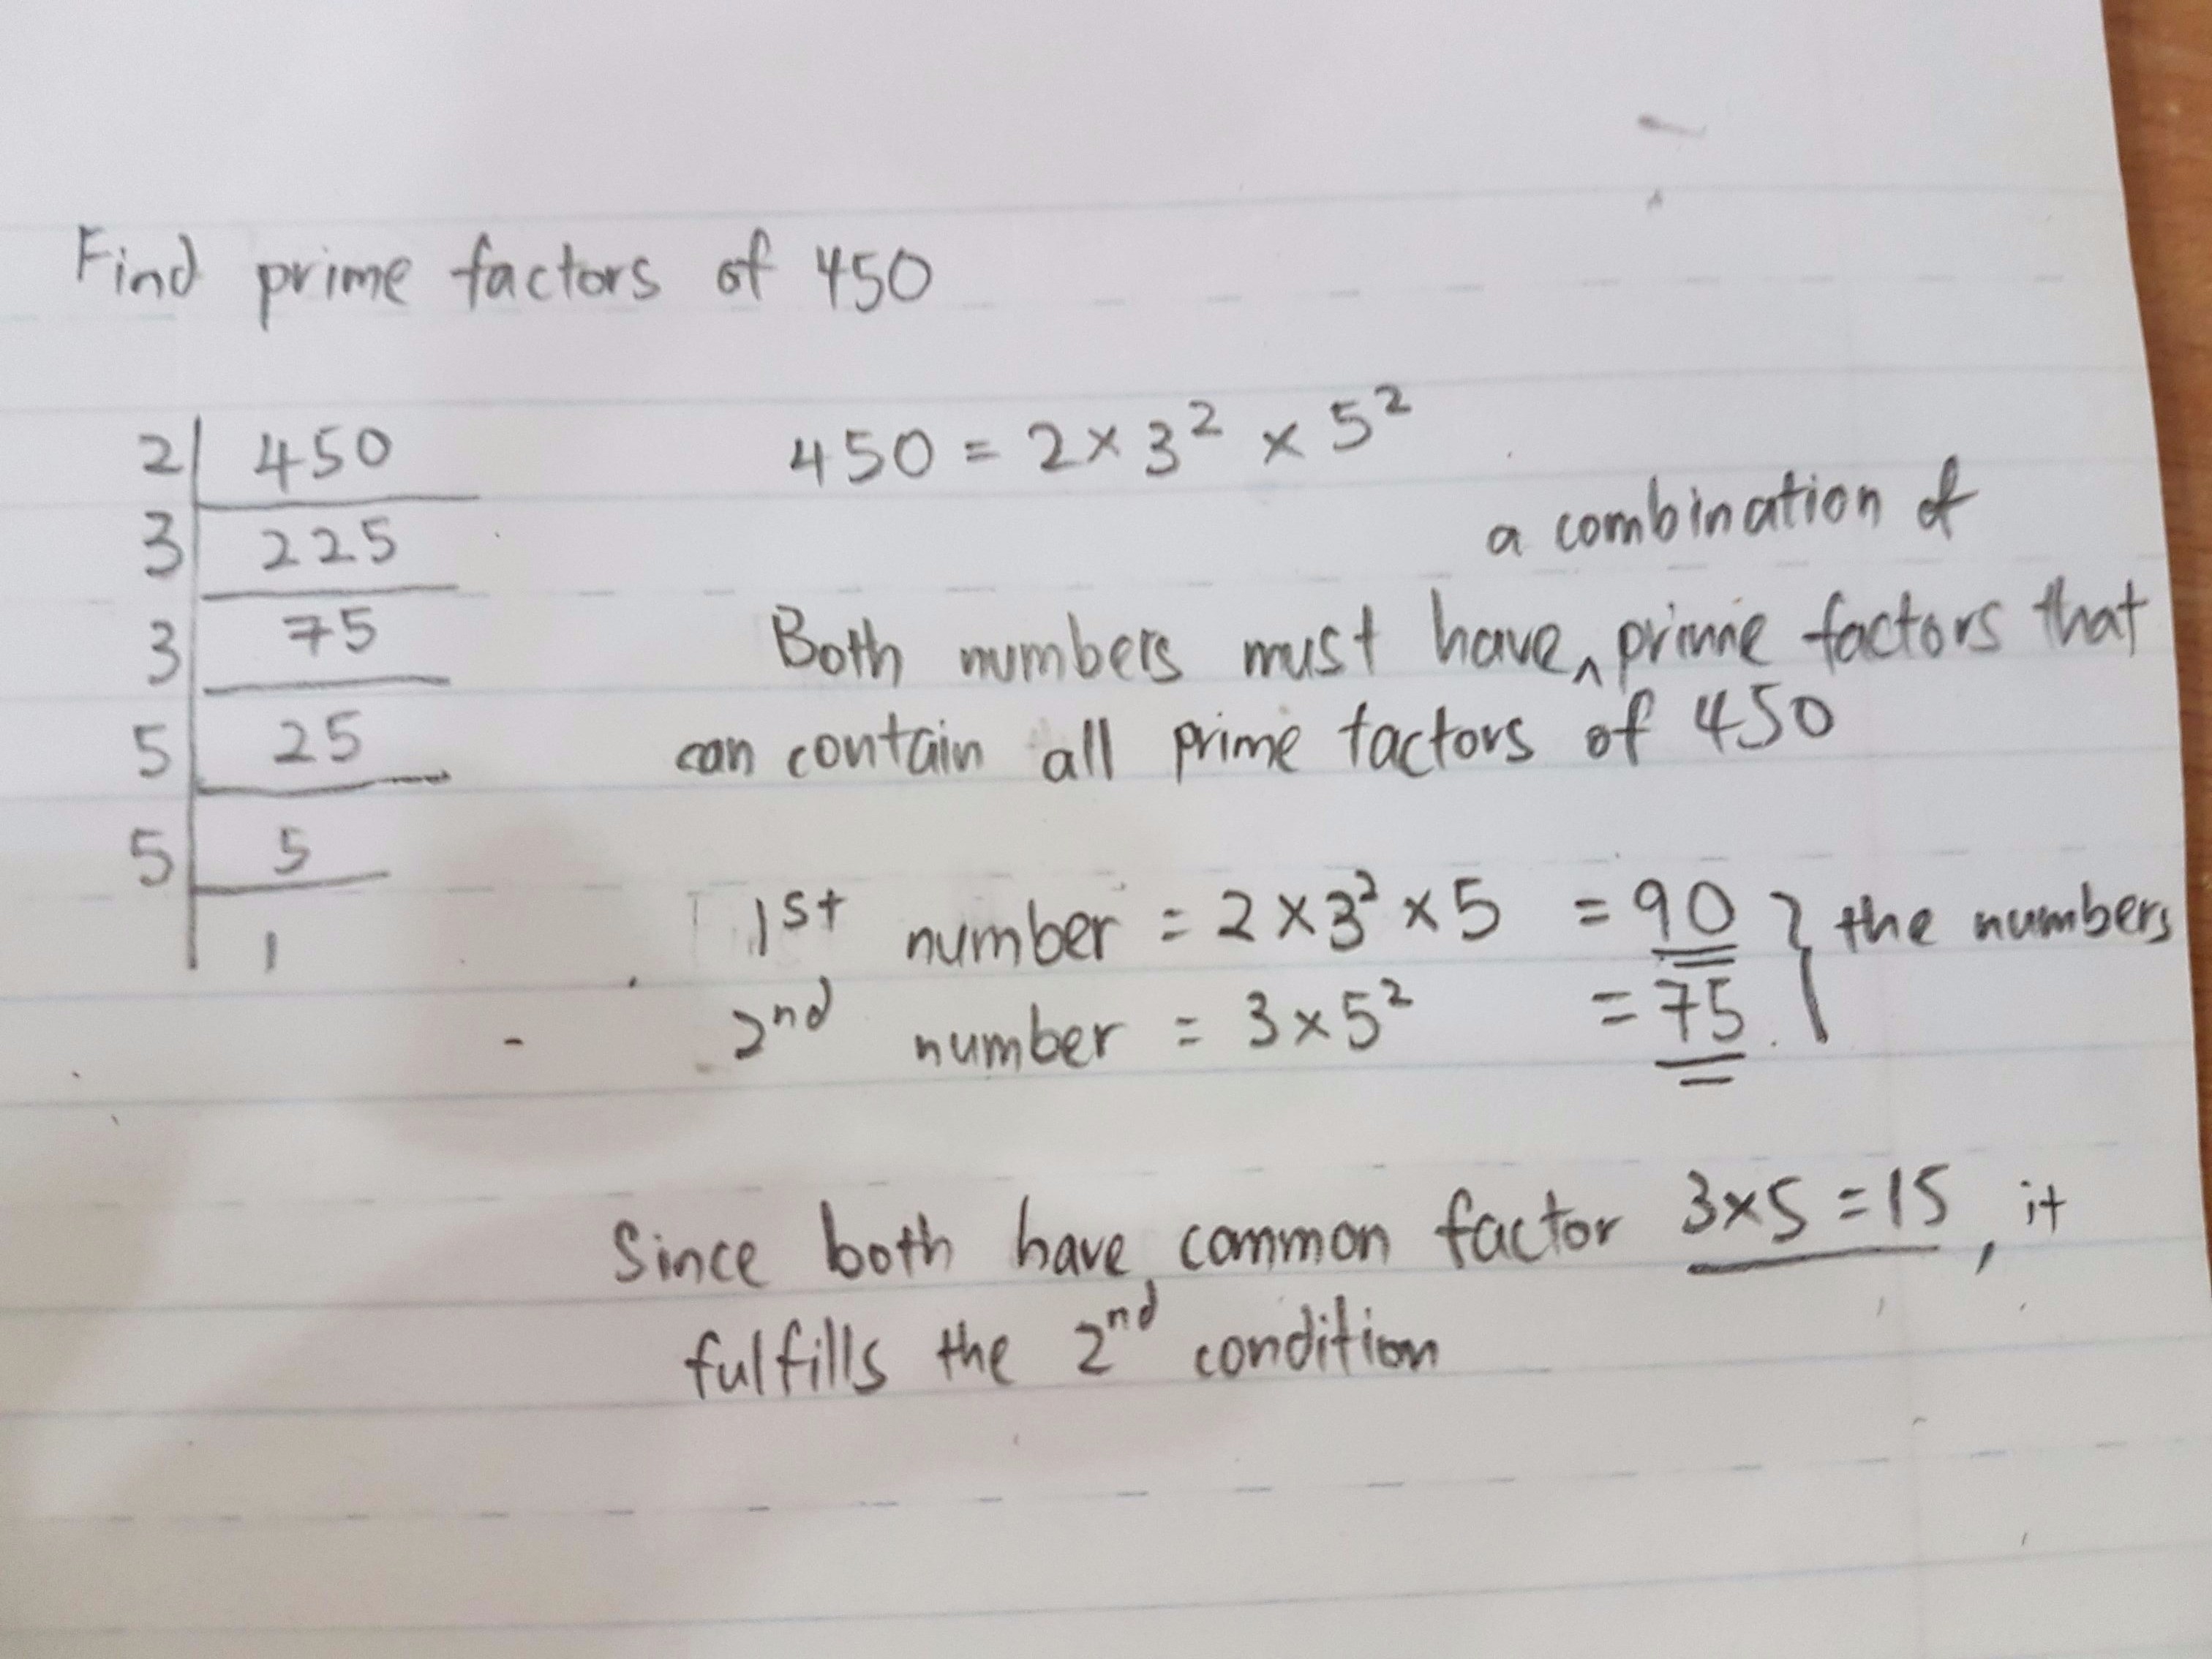 Find prime factors of 450
2 450
3 225
3 75
5 25
5 5
1
450 = 2 × 3² × 5²
a combination of
Both numbers must have ^ prime factors that
can contain all prime factors of 450
1st number = 2 × 3² × 5 = 90 } the numbers
2nd number = 3 × 5² = 75
Since both have common factor 3×5 = 15, it
fulfills the 2nd condition